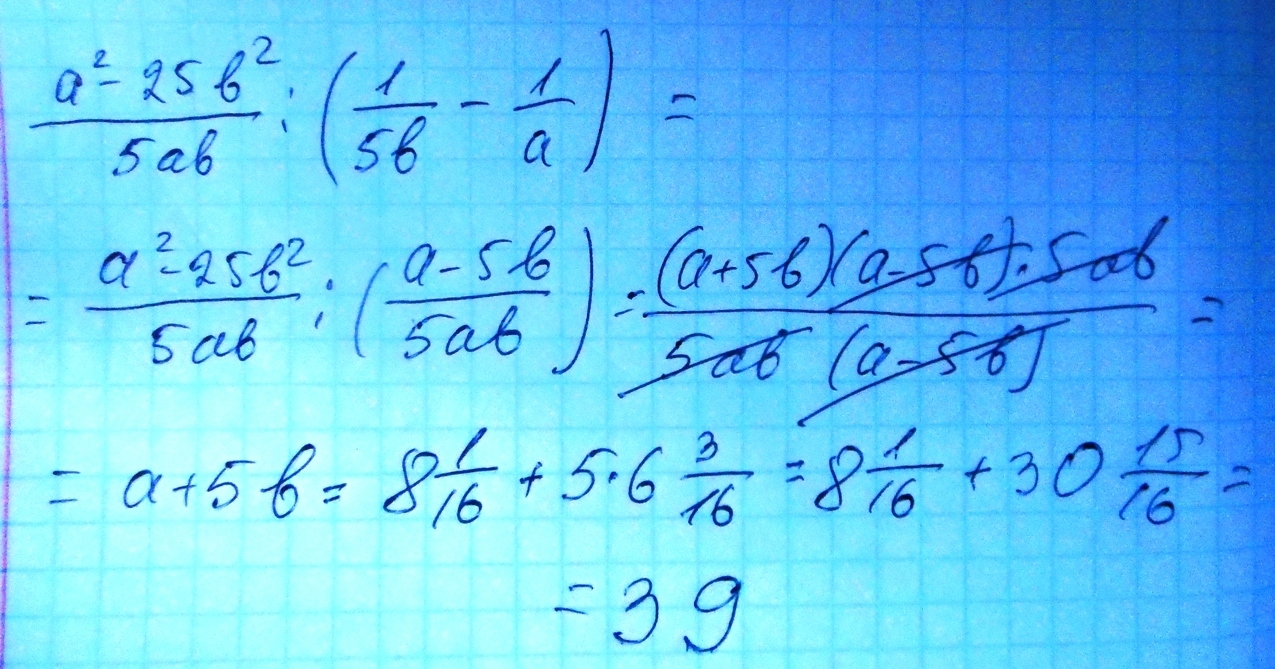 (a² - 25b²)/(5ab) : (1/(5b) - 1/a) =
= (a² - 25b²)/(5ab) : ((a - 5b)/(5ab)) = ((a+5b)(a-5b)·5ab)/(5ab (a-5b)) =
= a+5b = 8 1/16 + 5·6 3/16 = 8 1/16 + 30 15/16 =
= 39